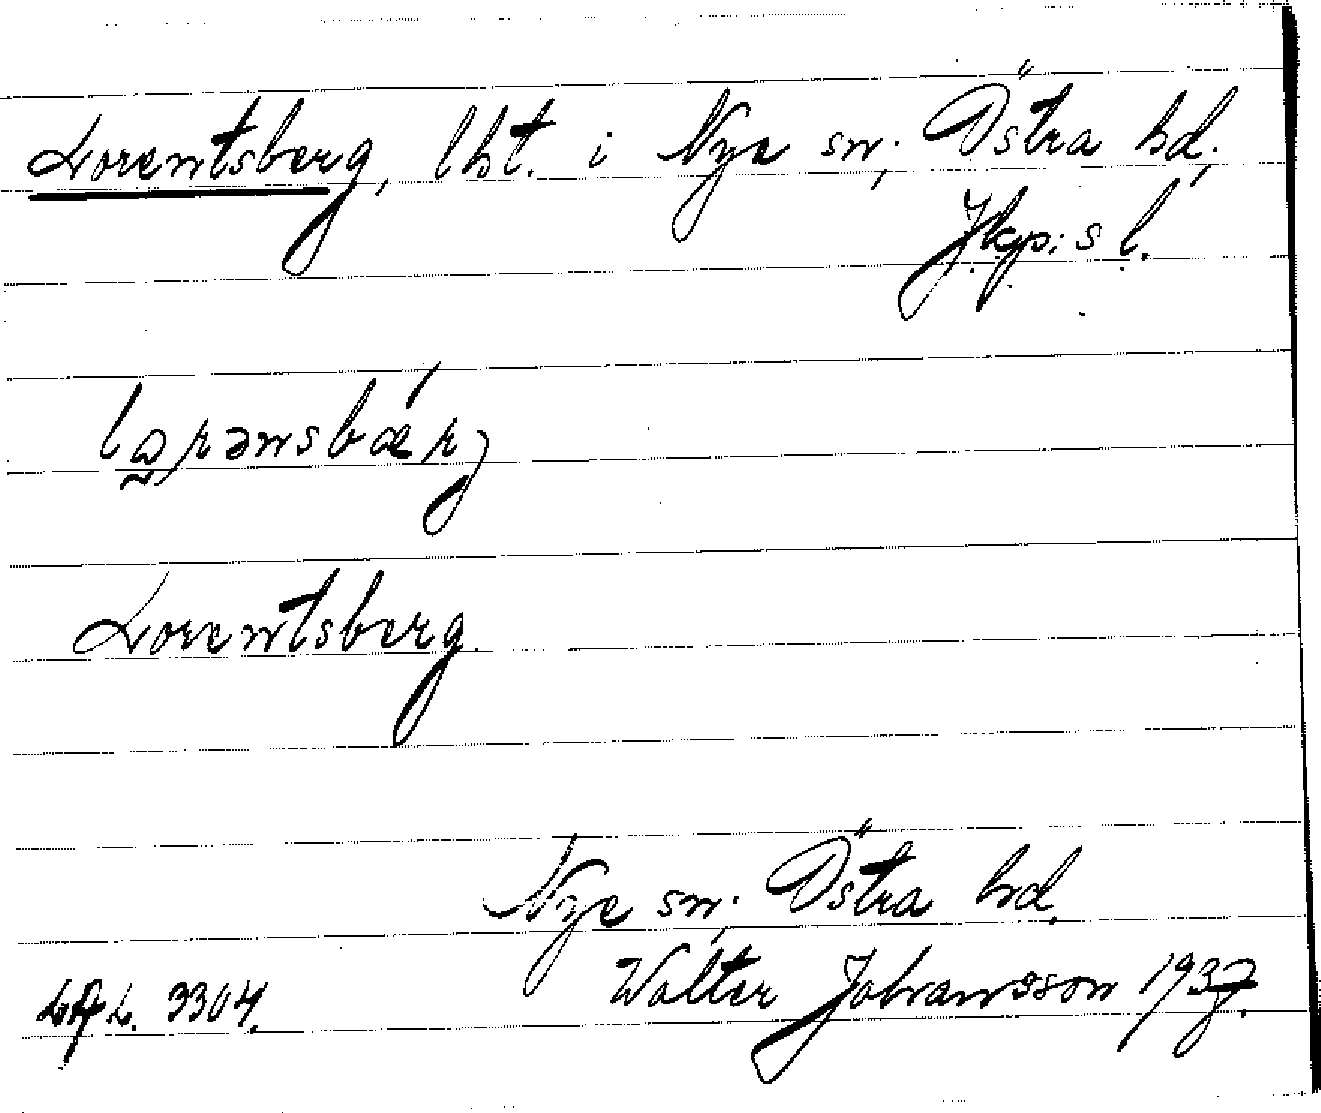 Lorentsberg, lht. i Nye sn; Östra hd;
Jkp:s l.
lorənsbær
Lorentsberg.
Nye sn; Östra hd.
Walter Johansson 1937.
3304.